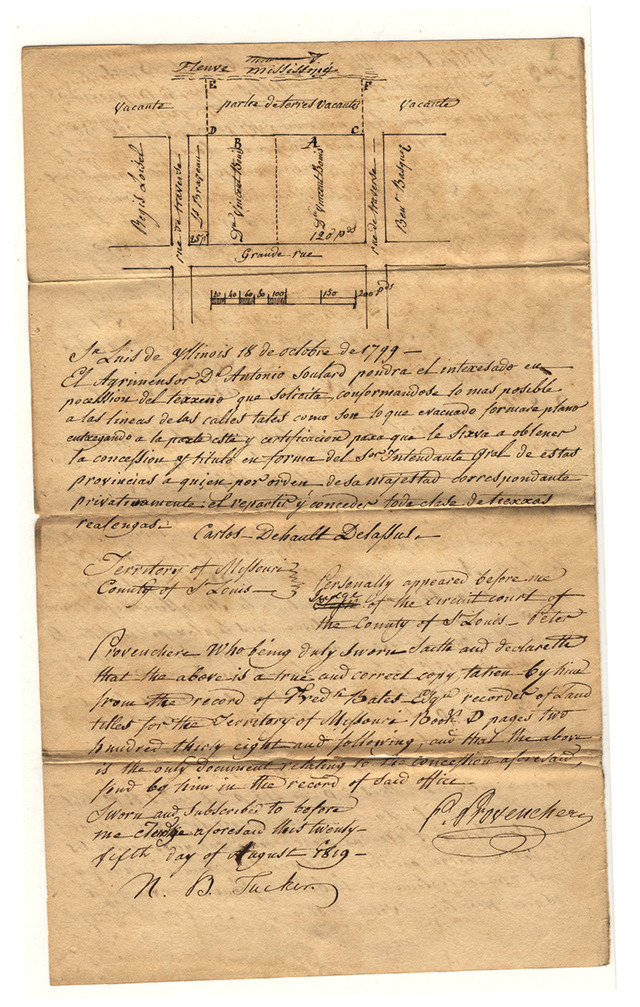 Fleuve Mississipy
E F
vacante partie de terres vacantes vacante
D B A C
Regis Loisel
rue de traverse
Dn Vincent Bouis
Dn Vincent Bouis
rue de traverse
25p 120 pds
Grande rue
100 150 200 pds
Sn Luis de Yllinois 18 de octobre de 1799 -
El Agrimensor Dn Antonio Soulard pondra el interesado en
pocession del terreno que solicita, conformandose lo mas posible
a las lineas de las calles tales como son lo que evacuado formara plano
entregando a la parte este y certificacion para que le sirva a obtener
la concession y titulo en forma del Sor Intendante Gral de estas
provincias a quien por orden de sa majestad correspondante
privativamente el repartir y conceder toda clase de tierras
realengas.
Carlos Dehault Delassus.
Territory of Missouri
County of St Louis
Personally appeared before me
Judge of the circuit court of
the County of St Louis - Peter
Provenchere Who being duly Sworn Saith and declareth
that the above is a true and correct copy, taken by him
from the record of Fredk Bates Esqre recorder of Land
titles for the Territory of Missouri Book D pages two
hundred thirty eight and following, and that the above
is the only document relating to the concession aforesaid,
find by him in the record of said office
Sworn and Subscribed to before
me Judge aforesaid this twenty-
fifth day of August 1819 -
P. Provenchere
N. B. Tucker.